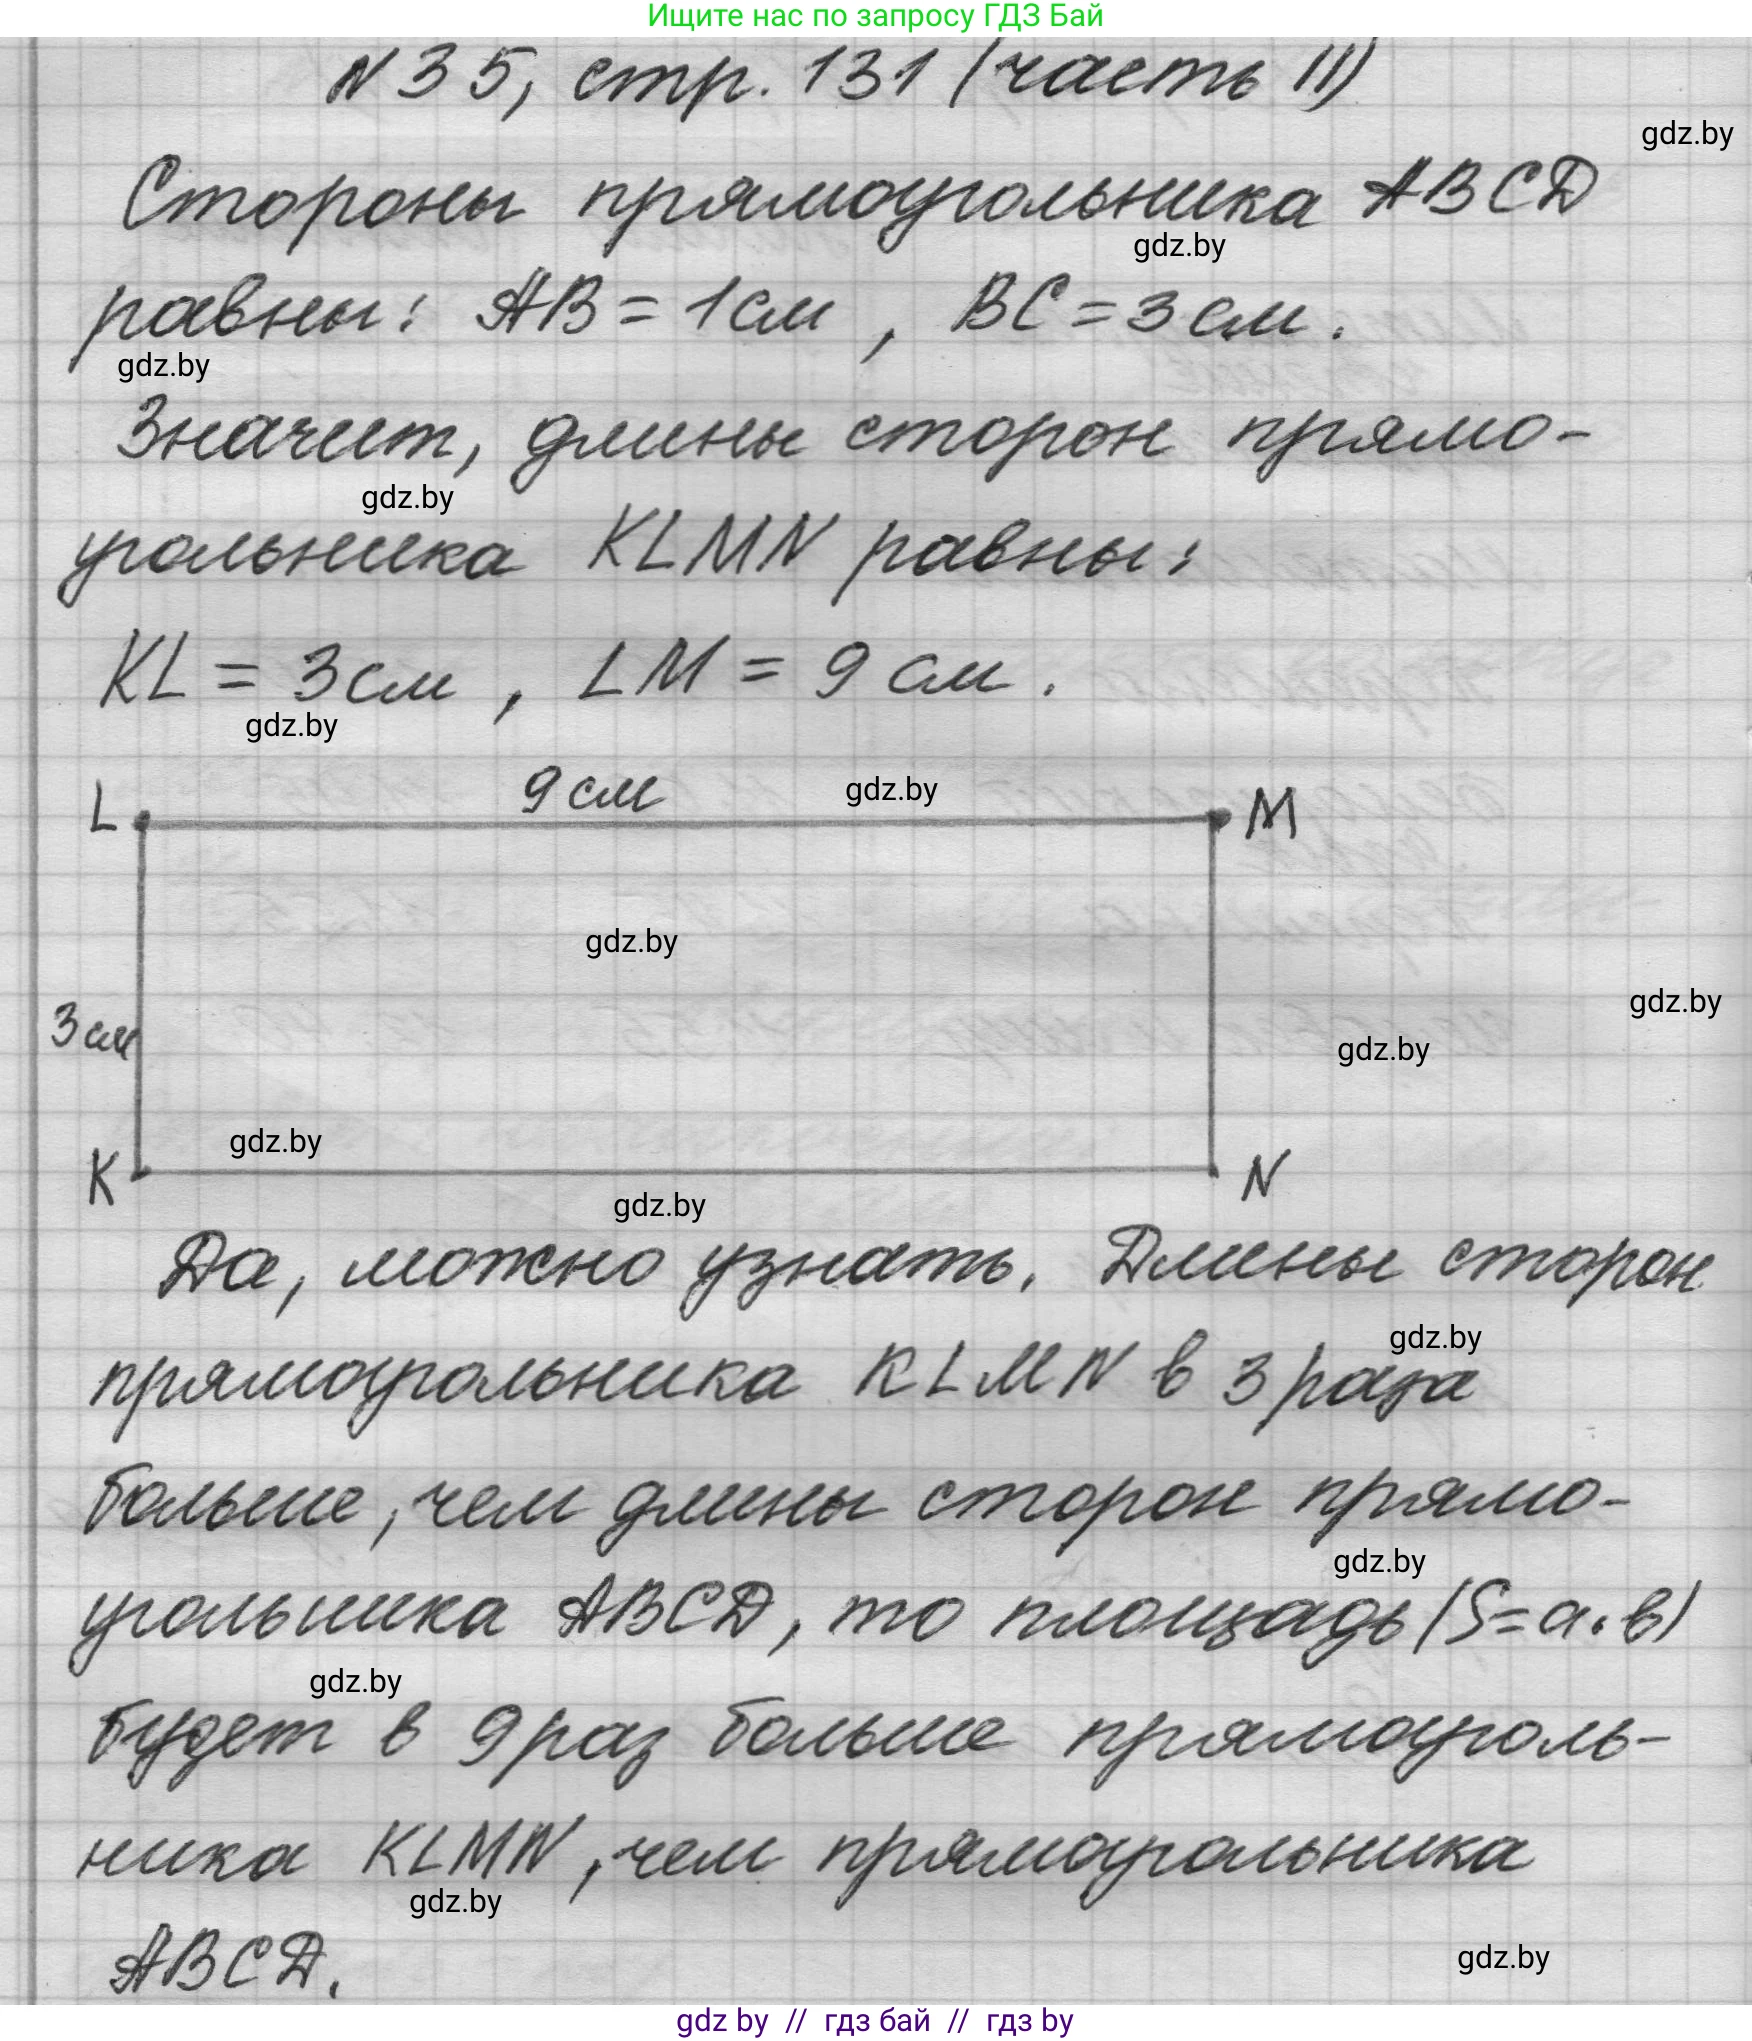 Ищите нас по запросу ГДЗ Бай
N 35, стр. 131 (часть II)
gdz.by
Стороны прямоугольника ABCD
gdz.by
равны: AB = 1 см, BC = 3 см.
gdz.by
Значит, длины сторон прямо-
gdz.by
угольника KLMN равны:
KL = 3 см, LM = 9 см.
gdz.by
9 см
gdz.by
L M
gdz.by
gdz.by
3 см
gdz.by
gdz.by
K N
gdz.by
Да, можно узнать. Длины сторон
gdz.by
прямоугольника KLMN в 3 раза
больше, чем длины сторон прямо-
gdz.by
угольника ABCD, то площадь (S=a·b)
gdz.by
будет в 9 раз больше прямоуголь-
ника KLMN, чем прямоугольника
gdz.by
ABCD.
gdz.by
gdz by // гдз бай // гдз by